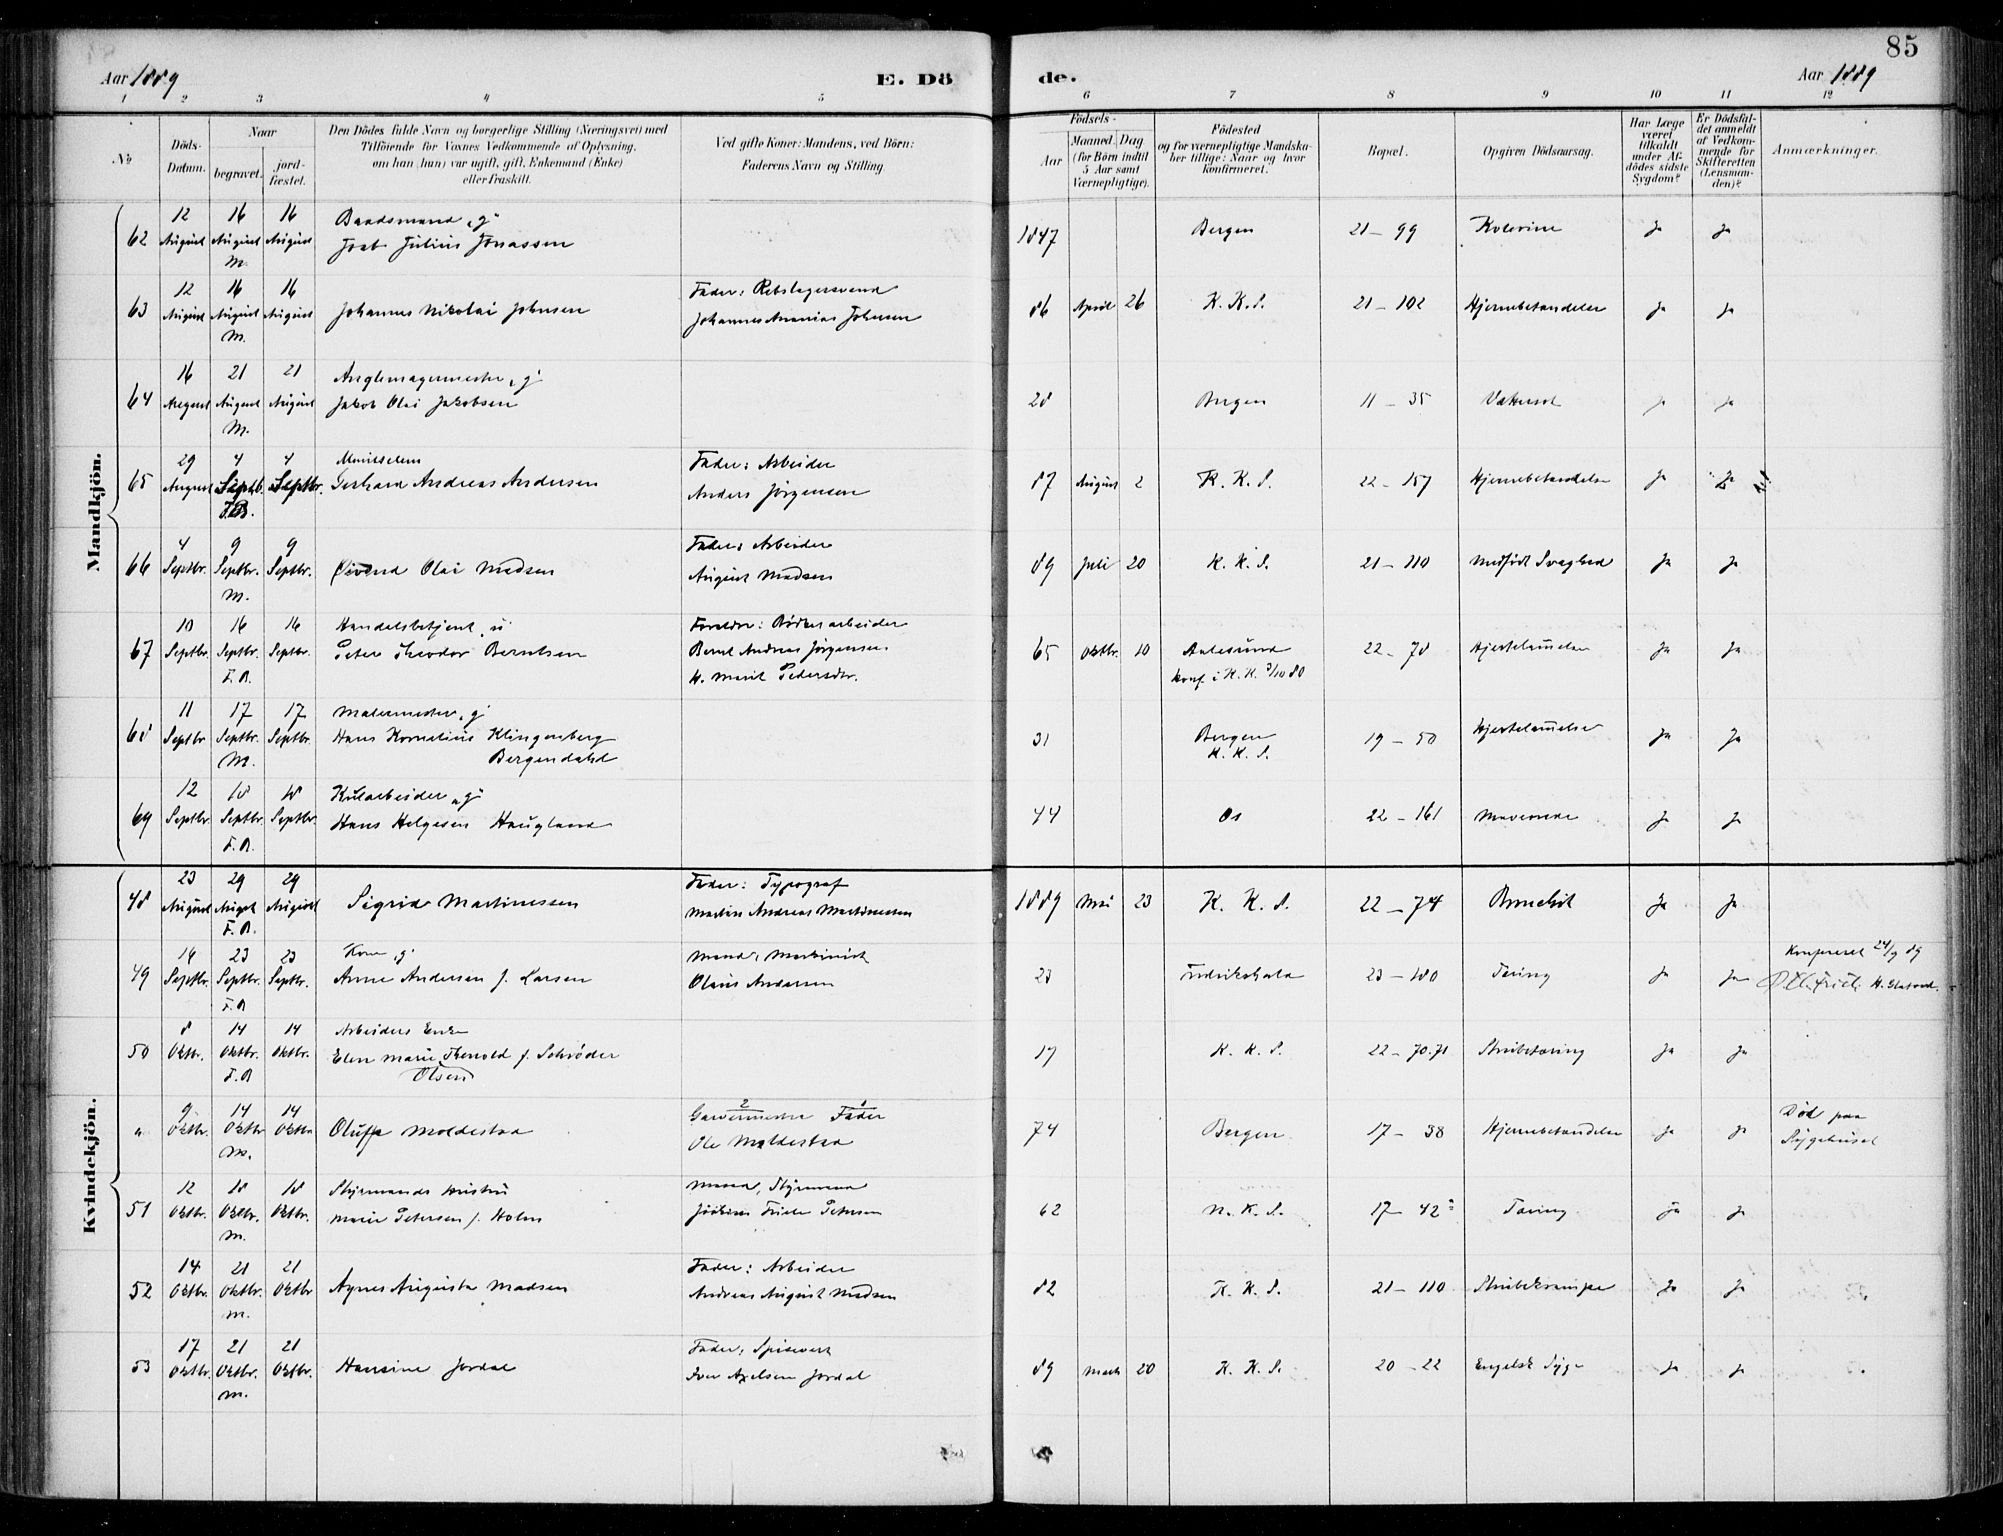 85
Aar 1889 E. Dö de. Aar 1889
1 2 3 4 5 6 7 8 9 10 11 12
№ Döds-Datum. Naar begravet. jordfæstet. Den Dödes fulde Navn og borgerlige Stilling (Næringsvei) med Tilföiende for Voxnes Vedkommende af Oplysning, om han (hun) var ugift, gift, Enkemand (Enke) eller fraskilt. Ved gifte Koner: Mandens, ved Börn: Faderens Navn og Stilling. Födsels- Aar Maaned. Dag (for Börn indtil 5 Aar samt Værnepligtige). Födested og for værnepligtige Mandskaber tillige: Naar og hvor konfirmeret. Bopæl. Opgiven Dödsaarsag. Har Læge været tilkaldt under Afdödes sidste Sygdom? Er Dödsfaldet anmeldt af Vedkommende for Skifteretten (Lensmanden)? Anmærkninger.
Mandkjön.
62 12 August 16 August M. 16 August Baadsmand „g" Joab Julius Jonassen 1847 Bergen 21 – 99 Kolerine Ja Ja
63 12 August 16 August M. 16 August Johannes Nikolai Johnsen Fader: Rebslagersvend Johannes Ananias Johnsen 86 April 26 K. K. S. 21 – 102 Hjernebetændelse Ja Ja
64 16 August 21 August M. 21 August „g" Jakob Olai Jakobsen 28 Bergen 11 – 35 Vattersot Ja Ja
65 29 August 4 Septb. 4 Septbr. Gerhard Andreas Andersen Fader: Arbeider Anders Jørgensen 87 August 2 K. K. S. 22 – 157 Hjernebetændelse Ja Ja
66 4 Septbr. 9 Septbr. M. 9 Septbr. Øivend Olai Madsen Fader: Arbeider August Madsen 89 Juli 20 K. K. S. 21 – 110 Medfødt Svaghed Ja Ja
67 10 Septbr. 16 Septbr. F. A. 16 Septbr. Handelsbetjent „u" Peter Theodor Berntsen Forældre: Bødkerarbeider Bernt Andreas Jørgensen H. Marit Pedersdtr. 65 Oktbr. 10 Aalesund konf. i K. K. 3/10 80 22 – 78 Hjertelammelse Ja Ja
68 11 Septbr 17 Septbr. M. 17 Septbr. Malermester „g" Hans Kornelius Klingenberg Bergendahl 31 Bergen K. K. S. 19 – 50 Hjertelammelse Ja Ja
69 12 Septbr. 18 Septbr. F. A. 18 Septbr. Kularbeider „g" Hans Helgesen Haugland 44 Os 22 – 161 Ja Ja
Kvindekjön.
48 23 August 29 August F. A. 29 August Sigrid Martinessen Fader: Typograf Martin Andreas Martinessen 1889 Mai 23 K. K. S. 22 – 74 Ja Ja
49 14 Septbr. 23 Septbr. F. A 23 Septbr. Kone „g" Anne Andersen f. Larsen Mand: Maskinist Olaus Andersen 23 Fredrikshald 23 – 180 Tæring Ja Ja Konfereret 24/9 89
50 8 Oktbr. 14 Oktbr. F. A 14 Oktbr. Arbeiders Enke Elen Marie Thevold f. Schrøder Olsen 17 K. K. S. 22 – 70.71 Strubetæring Ja Ja
" 9 Oktbr. 14 Oktbr M. 14 Oktbr Oluffa Moldestad Garvermester Fader Ole Moldestad 74 Bergen 17 – 38 Hjernebetændelse Ja Ja Død paa Sygehuset
51 12 Oktbr. 18 Oktbr. M. 18 Oktbr. Styrmands Hustru Marie Petersen f. Holm Mand, Styrmand Petersen 62 N. K. S. 17 – 42 Tæring Ja Ja
52 14 Oktbr. 21 Oktbr. M. 21 Oktbr Agnes Augusta Madsen Fader: Arbeider Andreas August Madsen 82 K. K. S. 21 – 110 Strubekrampe Ja Ja
53 17 Oktbr. 21 Oktbr. M. 21 Oktbr. Hansine Jordal Fader, Spisevert Iver Axelsen Jordal 89 Marts 20 K. K. S. 20 – 22 Engelsk Syge Ja Ja